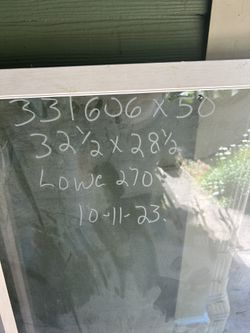 331606 x 50
32 ½ x 28 ½
Lowe 270
10-11-23.